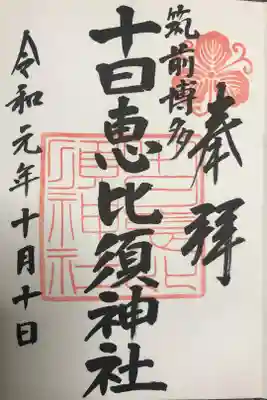 奉拝
筑前博多
十日恵比須神社
令和元年十月十日